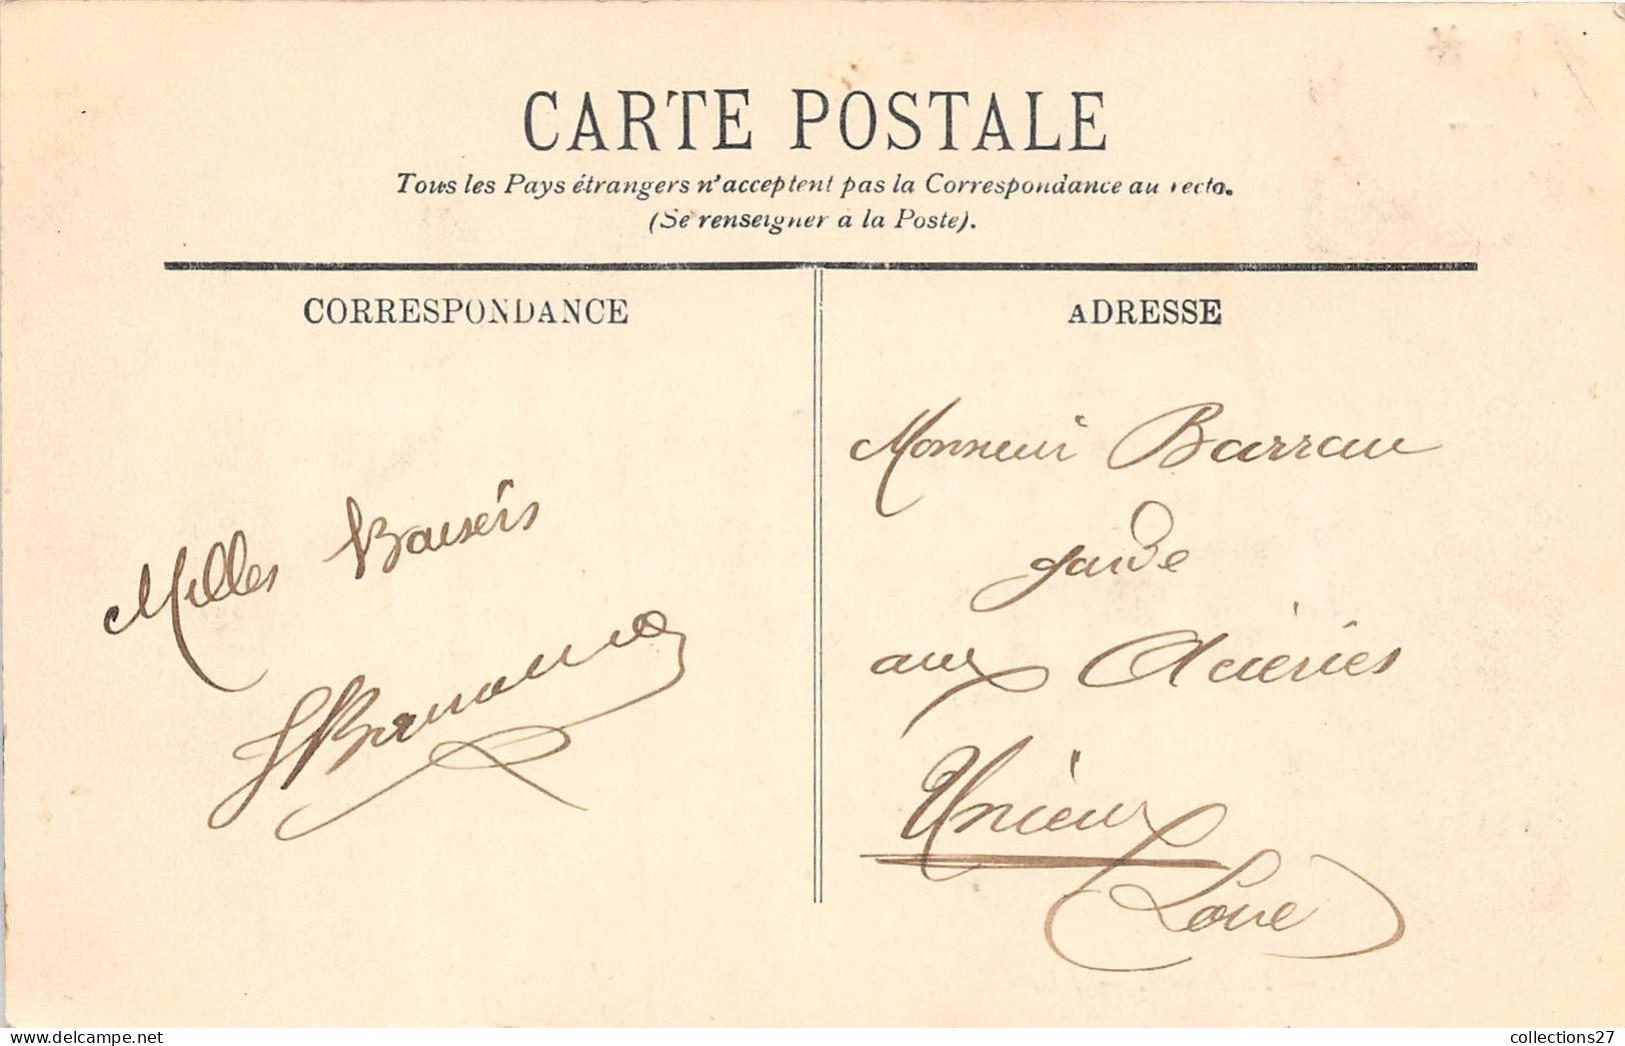 CARTE POSTALE
Tous les Pays étrangers n'acceptent pas la Correspondance au recto.
(Se renseigner à la Poste).
CORRESPONDANCE
Milles Baisers
ADRESSE
Monsieur Barrau
garde
aux Aciéries
Unieux
Loire
collections27